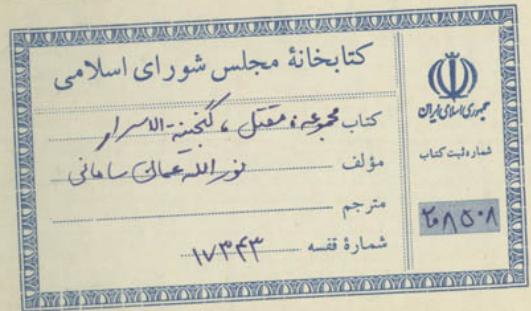 کتابخانهٔ مجلس شورای اسلامی
کتاب مجموعه: مقتل، گنجینة الاسرار
مؤلف نورالله عمان سامانی
مترجم
شمارهٔ قفسه ۱۷۳۴۳
جمهوری اسلامی ایران
شماره ثبت کتاب
۲۰۸۵۰۸